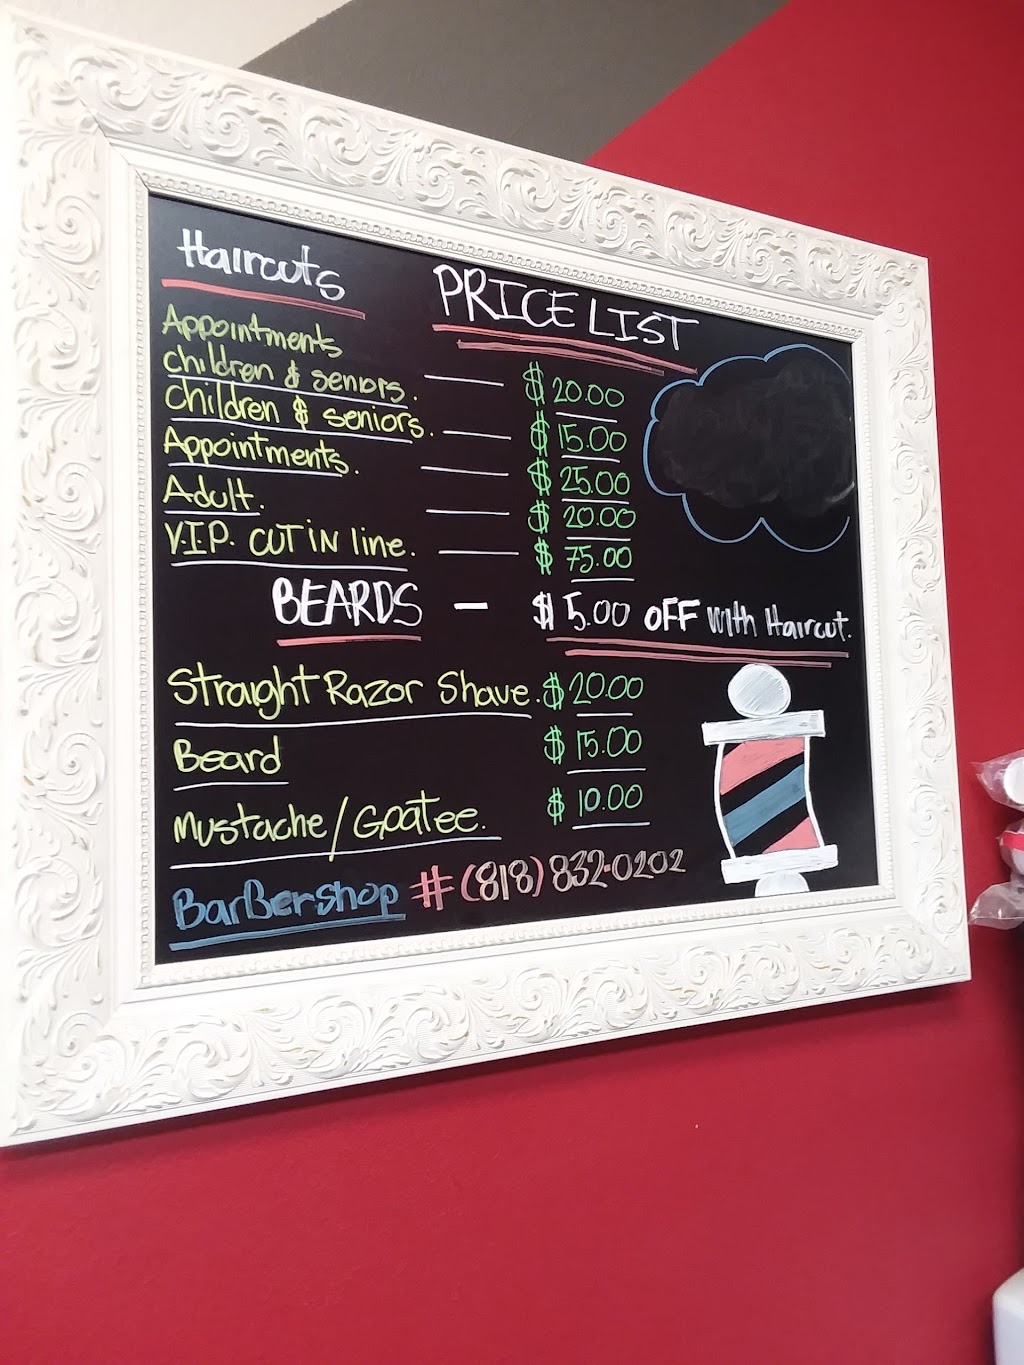 Haircuts
PRICE LIST
Appointments
children & seniors. — $20.00
Children & seniors. — $15.00
Appointments. — $25.00
Adult. — $20.00
V.I.P. CUT IN line. — $75.00
BEARDS - $5.00 OFF with Haircut.
Straight Razor Shave. $20.00
Beard $15.00
Mustache/Goatee. $10.00
BarBershop # (818) 832-0202